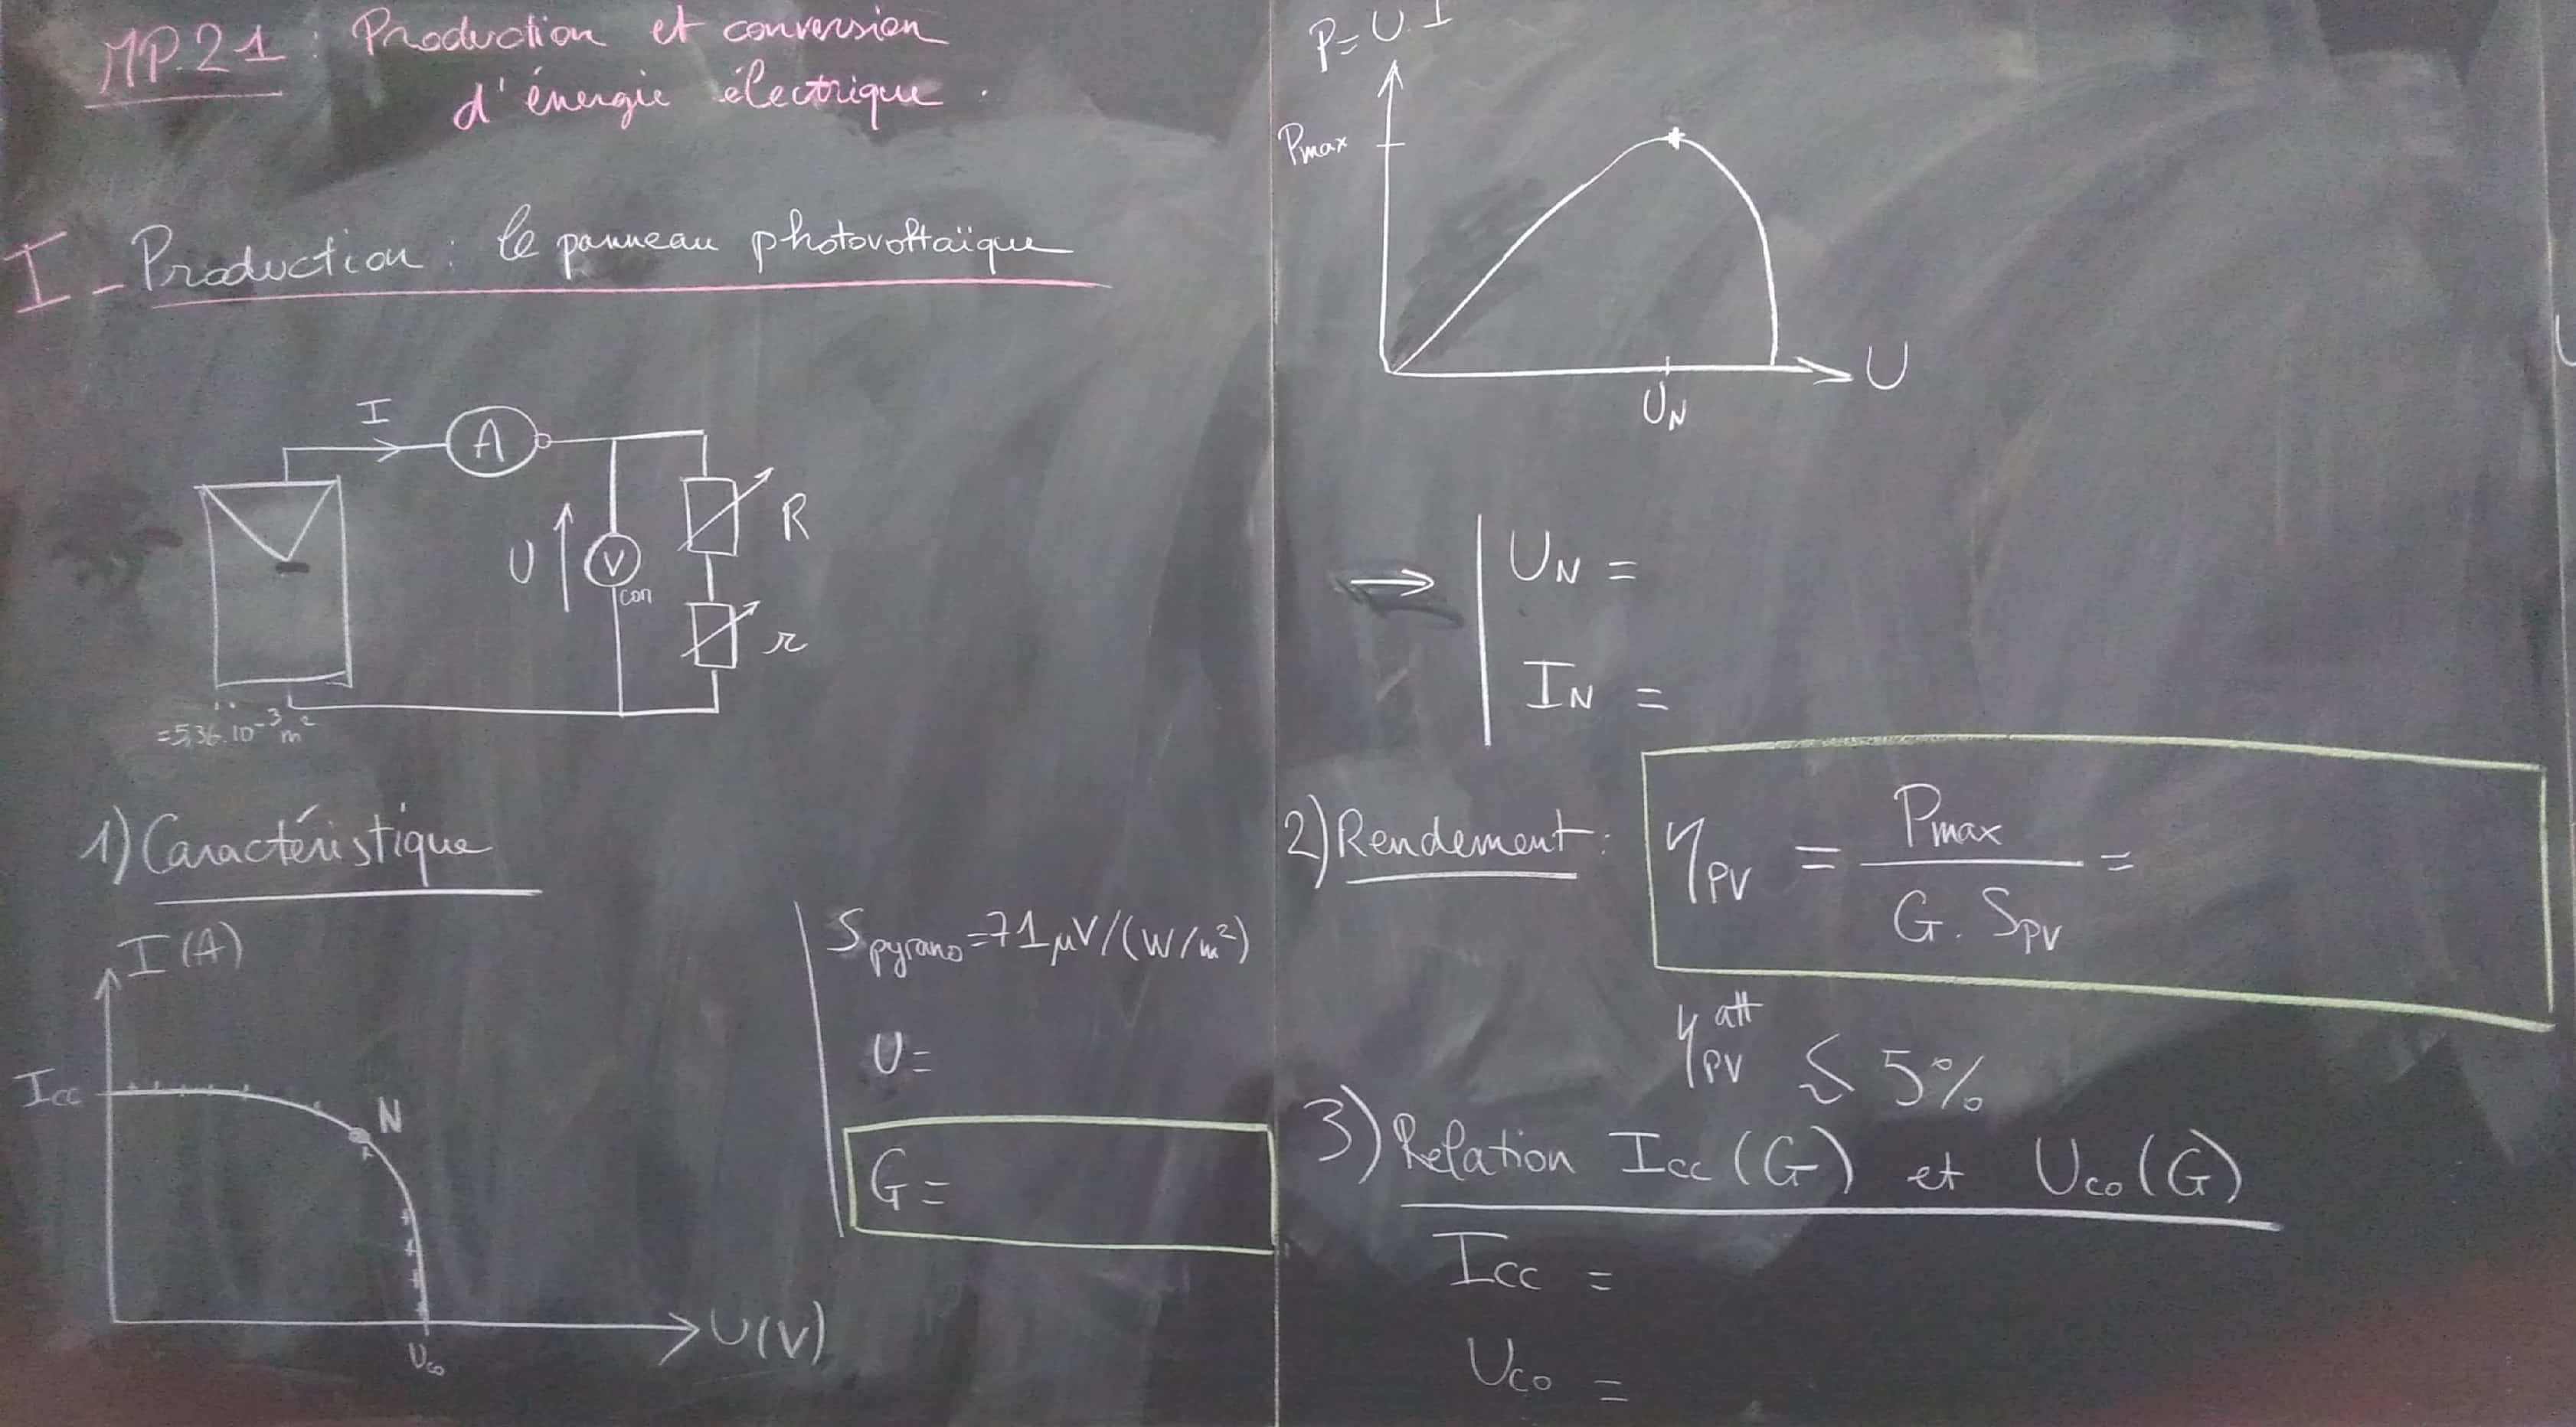 MP.21 : Production et conversion
d'énergie électrique.
I - Production : le panneau photovoltaïque
I
A
R
U
V
com
r
=5,36.10⁻³ m²
1) Caractéristique
I (A)
Icc
N
U(V)
Uco
Spyrano = 71 µV/(W/m²)
U =
G =
P = U.I
Pmax
U
UN
⇒ UN =
IN =
2) Rendement : ηPV = Pmax / (G . SPV) =
ηPV att ≲ 5%
3) Relation Icc (G) et Uco (G)
Icc =
Uco =